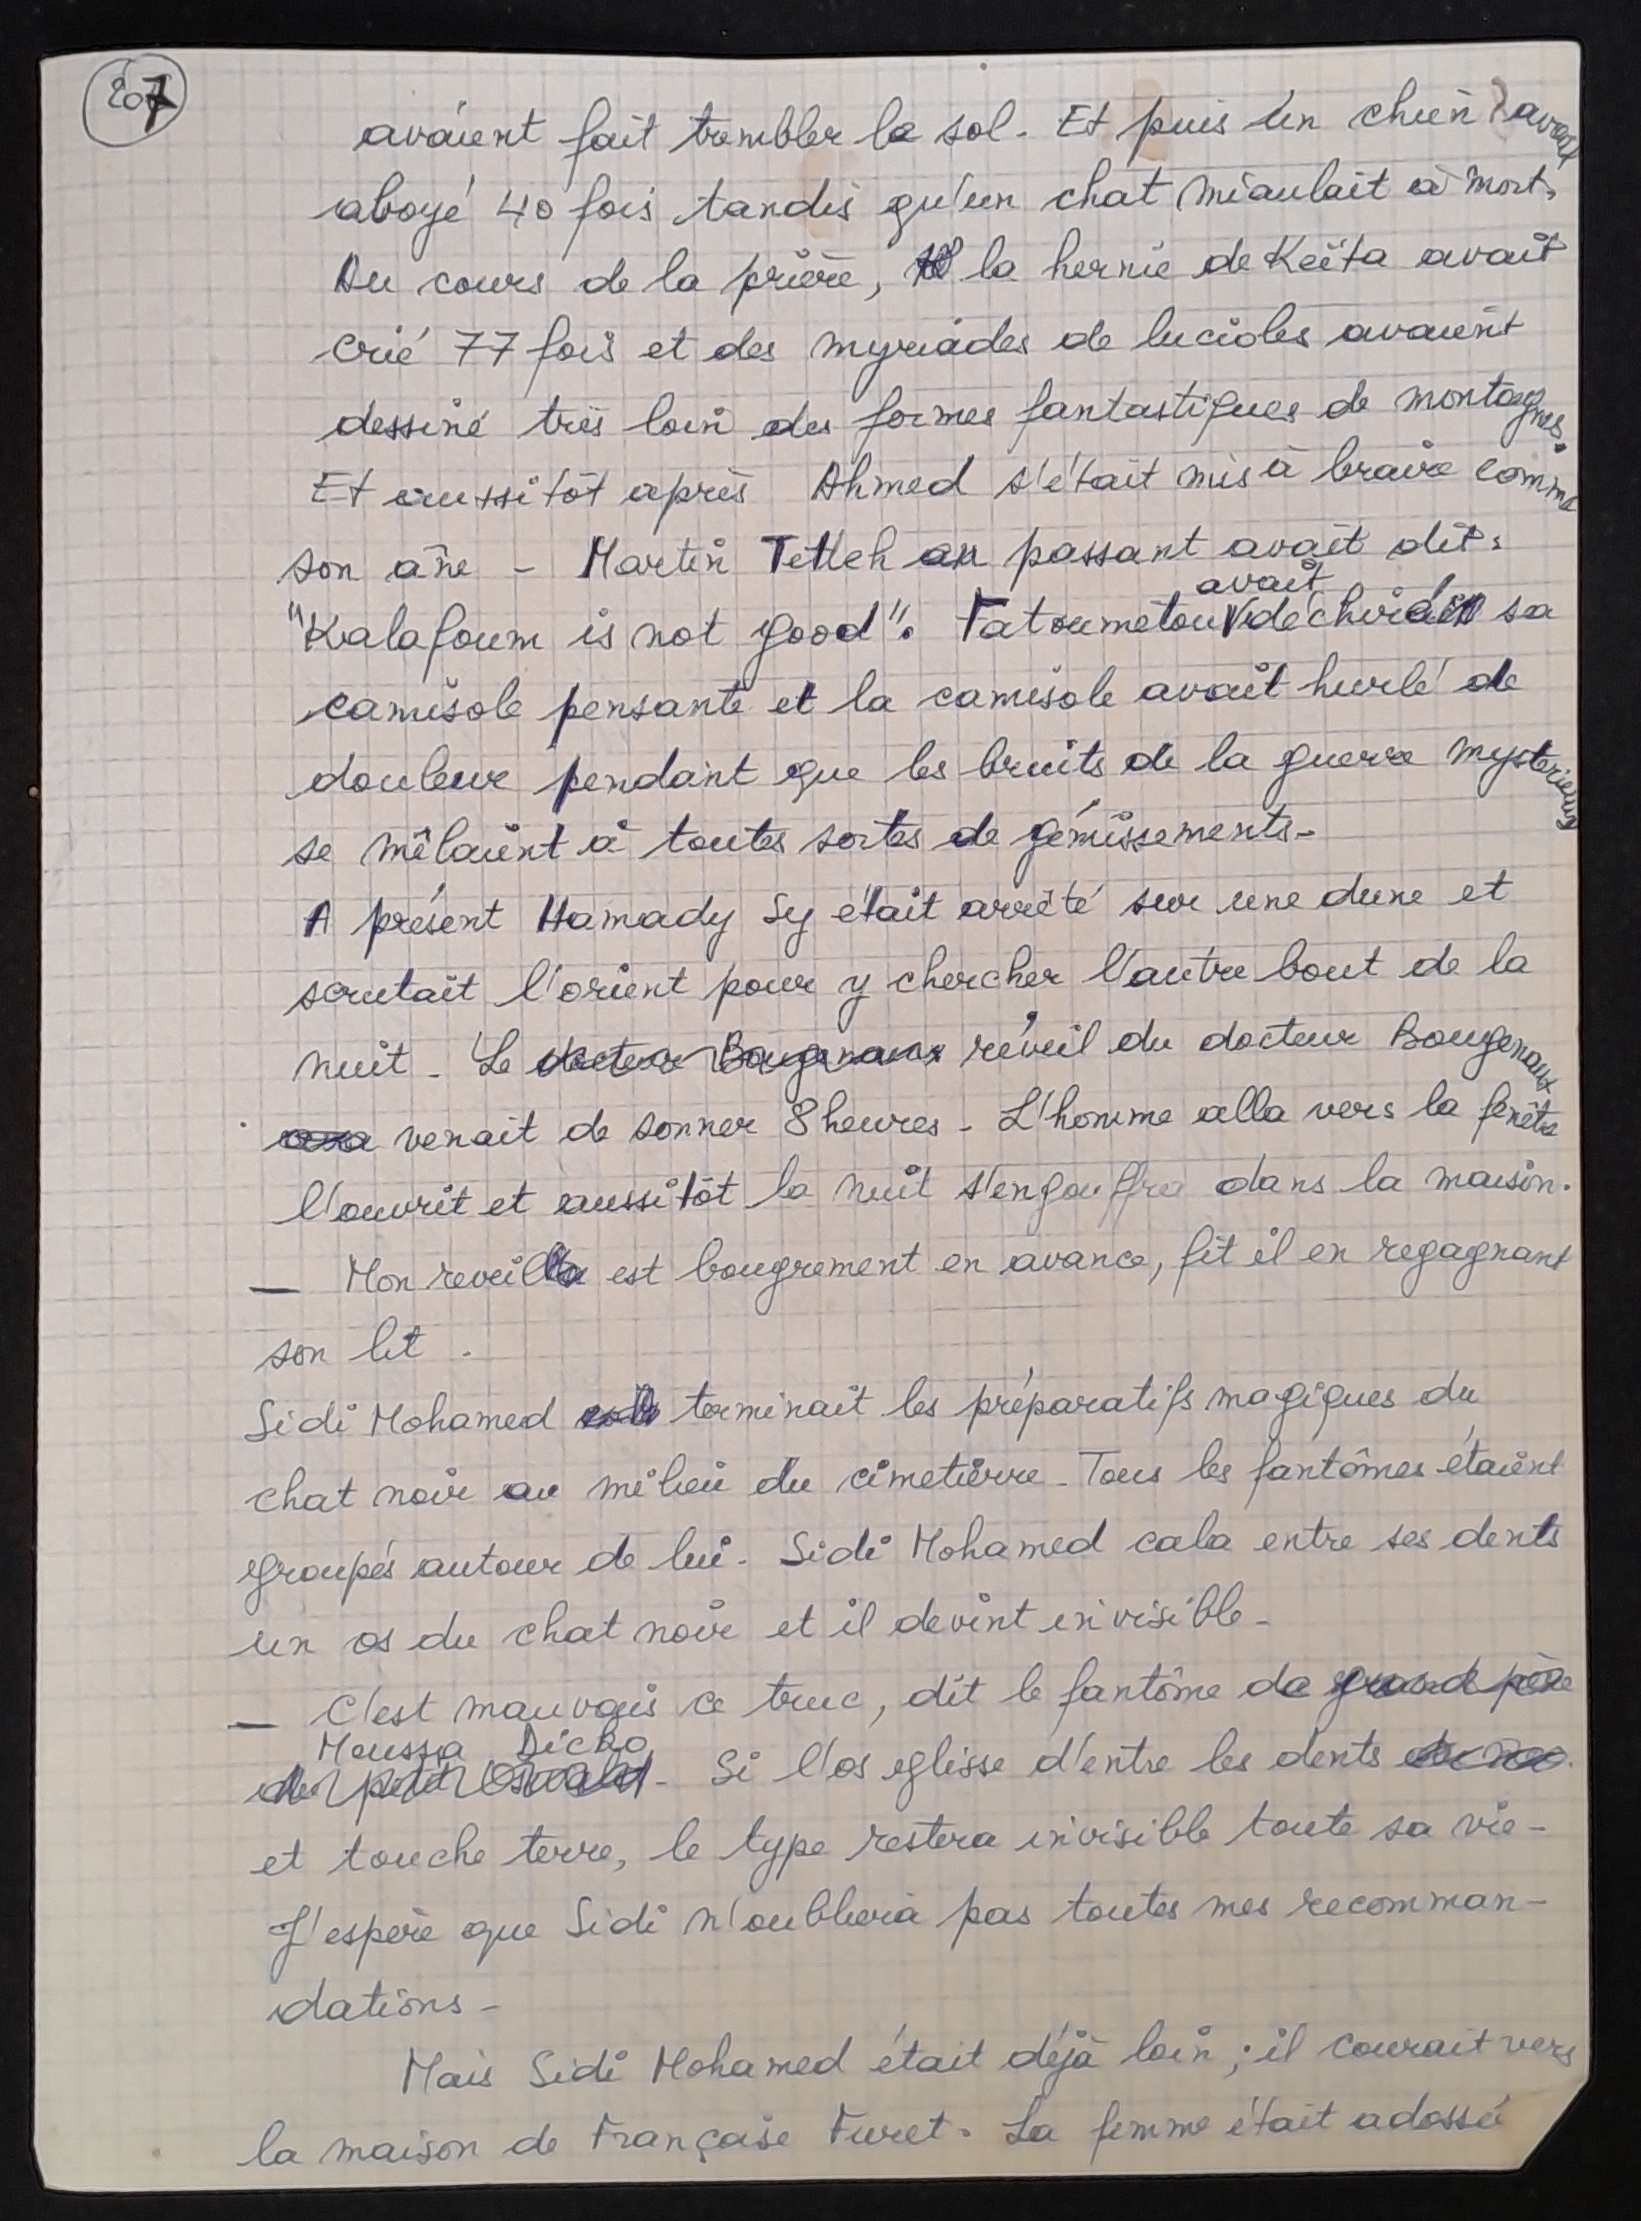 207
avaient fait trembler le sol. Et puis un chien avait
aboyé 40 fois tandis qu'un chat miaulait à mort.
Au cours de la prière, la hernie de Keïta avait
crié 77 fois et des myriades de lucioles avaient
dessiné très loin des formes fantastiques de montagnes.
Et aussitôt après Ahmed s'était mis à braire comme
son âne - Martin Tetteh en passant avait dit:
"Kalafoum is not good". Fatoumetou avait déchiré sa
camisole pensante et la camisole avait hurlé de
douleur pendant que les bruits de la guerre mystérieux
se mêlaient à toutes sortes de gémissements -
A présent Hamady Sy était arrêté sur une dune et
scrutait l'orient pour y chercher l'autre bout de la
nuit - Le docteur Bougenaux réveil du docteur Bougenaux
venait de sonner 8 heures - L'homme alla vers la fenêtre
l'ouvrit et aussitôt la nuit s'engouffra dans la maison.
— Mon reveil est bougrement en avance, fit il en regagnant
son lit.
Sidi Mohamed terminait les préparatifs magiques du
chat noir au milieu du cimetière - Tous les fantômes étaient
groupés autour de lui - Sidi Mohamed cala entre ses dents
un os du chat noir et il devint invisible -
— C'est mauvais ce truc, dit le fantôme de grand père
Moussa Dicko
du petit Oswald - Si l'os glisse d'entre les dents
et touche terre, le type restera invisible toute sa vie -
J'espère que Sidi n'oubliera pas toutes mes recomman-
dations -
Mais Sidi Mohamed était déjà loin ; il courait vers
la maison de Française Furet - La femme était adossée